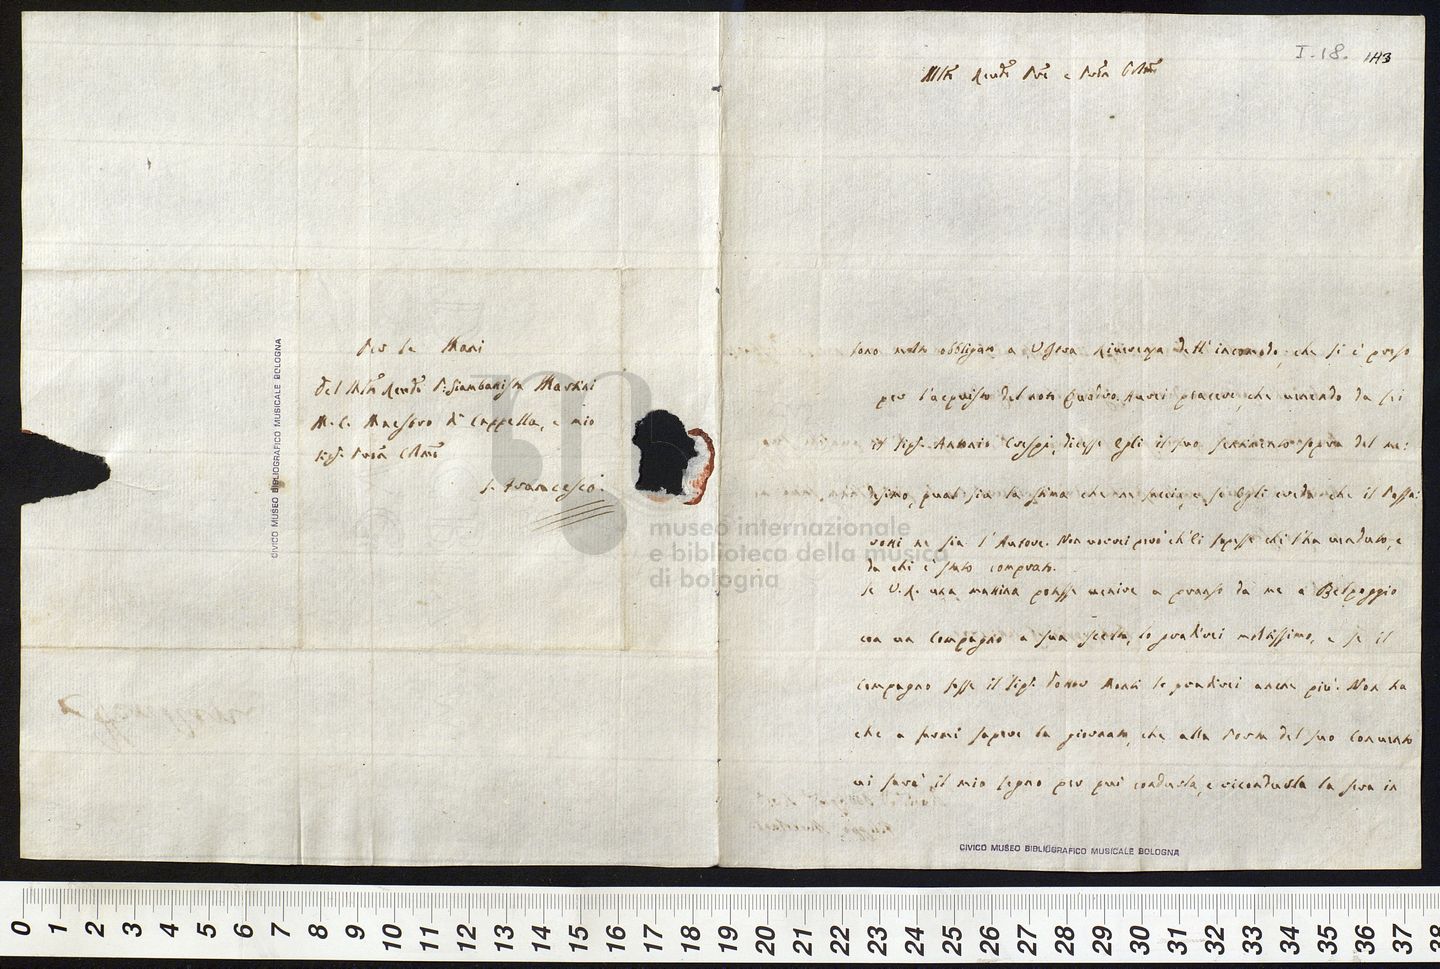 Per le Mani
Del Molto Revdo P. Giambattista Martini
M. C. Maestro di Cappella, e mio
Sigr Pron Colmo
S. Francesco.
CIVICO MUSEO BIBLIOGRAFICO MUSICALE BOLOGNA
museo internazionale
e biblioteca della musica
di bologna
I. 18. 143
Mlto Revdo Pre e Pron Colmo
Sono molto obbligato a V. Stra Riverenza dell' incomodo, che si è preso
per l'acquisto del noto Quadro. Avrei piacere, che venendo da Lei
il Sigr Antonio Crespi, dicesse Egli il suo sentimento sopra del me:
desimo, qual sia la stima che ne faccia, e se Egli creda che il Passa:
rotti ne sia l'Autore. Non vorrei però ch'Ei sapesse chi l'ha venduto, e
da chi è stato comprato.
Se V. R. una mattina potesse venire a pranzo da me a Belpoggio
con un Compagno a sua scelta, lo gradirei moltissimo, e se il
Compagno fosse il Sigr Dottor Monti lo gradirei anche più. Non ha
che a farmi sapere la giornata, che alla Porta del suo Convento
vi sarà il mio legno per qui condurla, e ricondurla la sera in
CIVICO MUSEO BIBLIOGRAFICO MUSICALE BOLOGNA
0 1 2 3 4 5 6 7 8 9 10 11 12 13 14 15 16 17 18 19 20 21 22 23 24 25 26 27 28 29 30 31 32 33 34 35 36 37 38